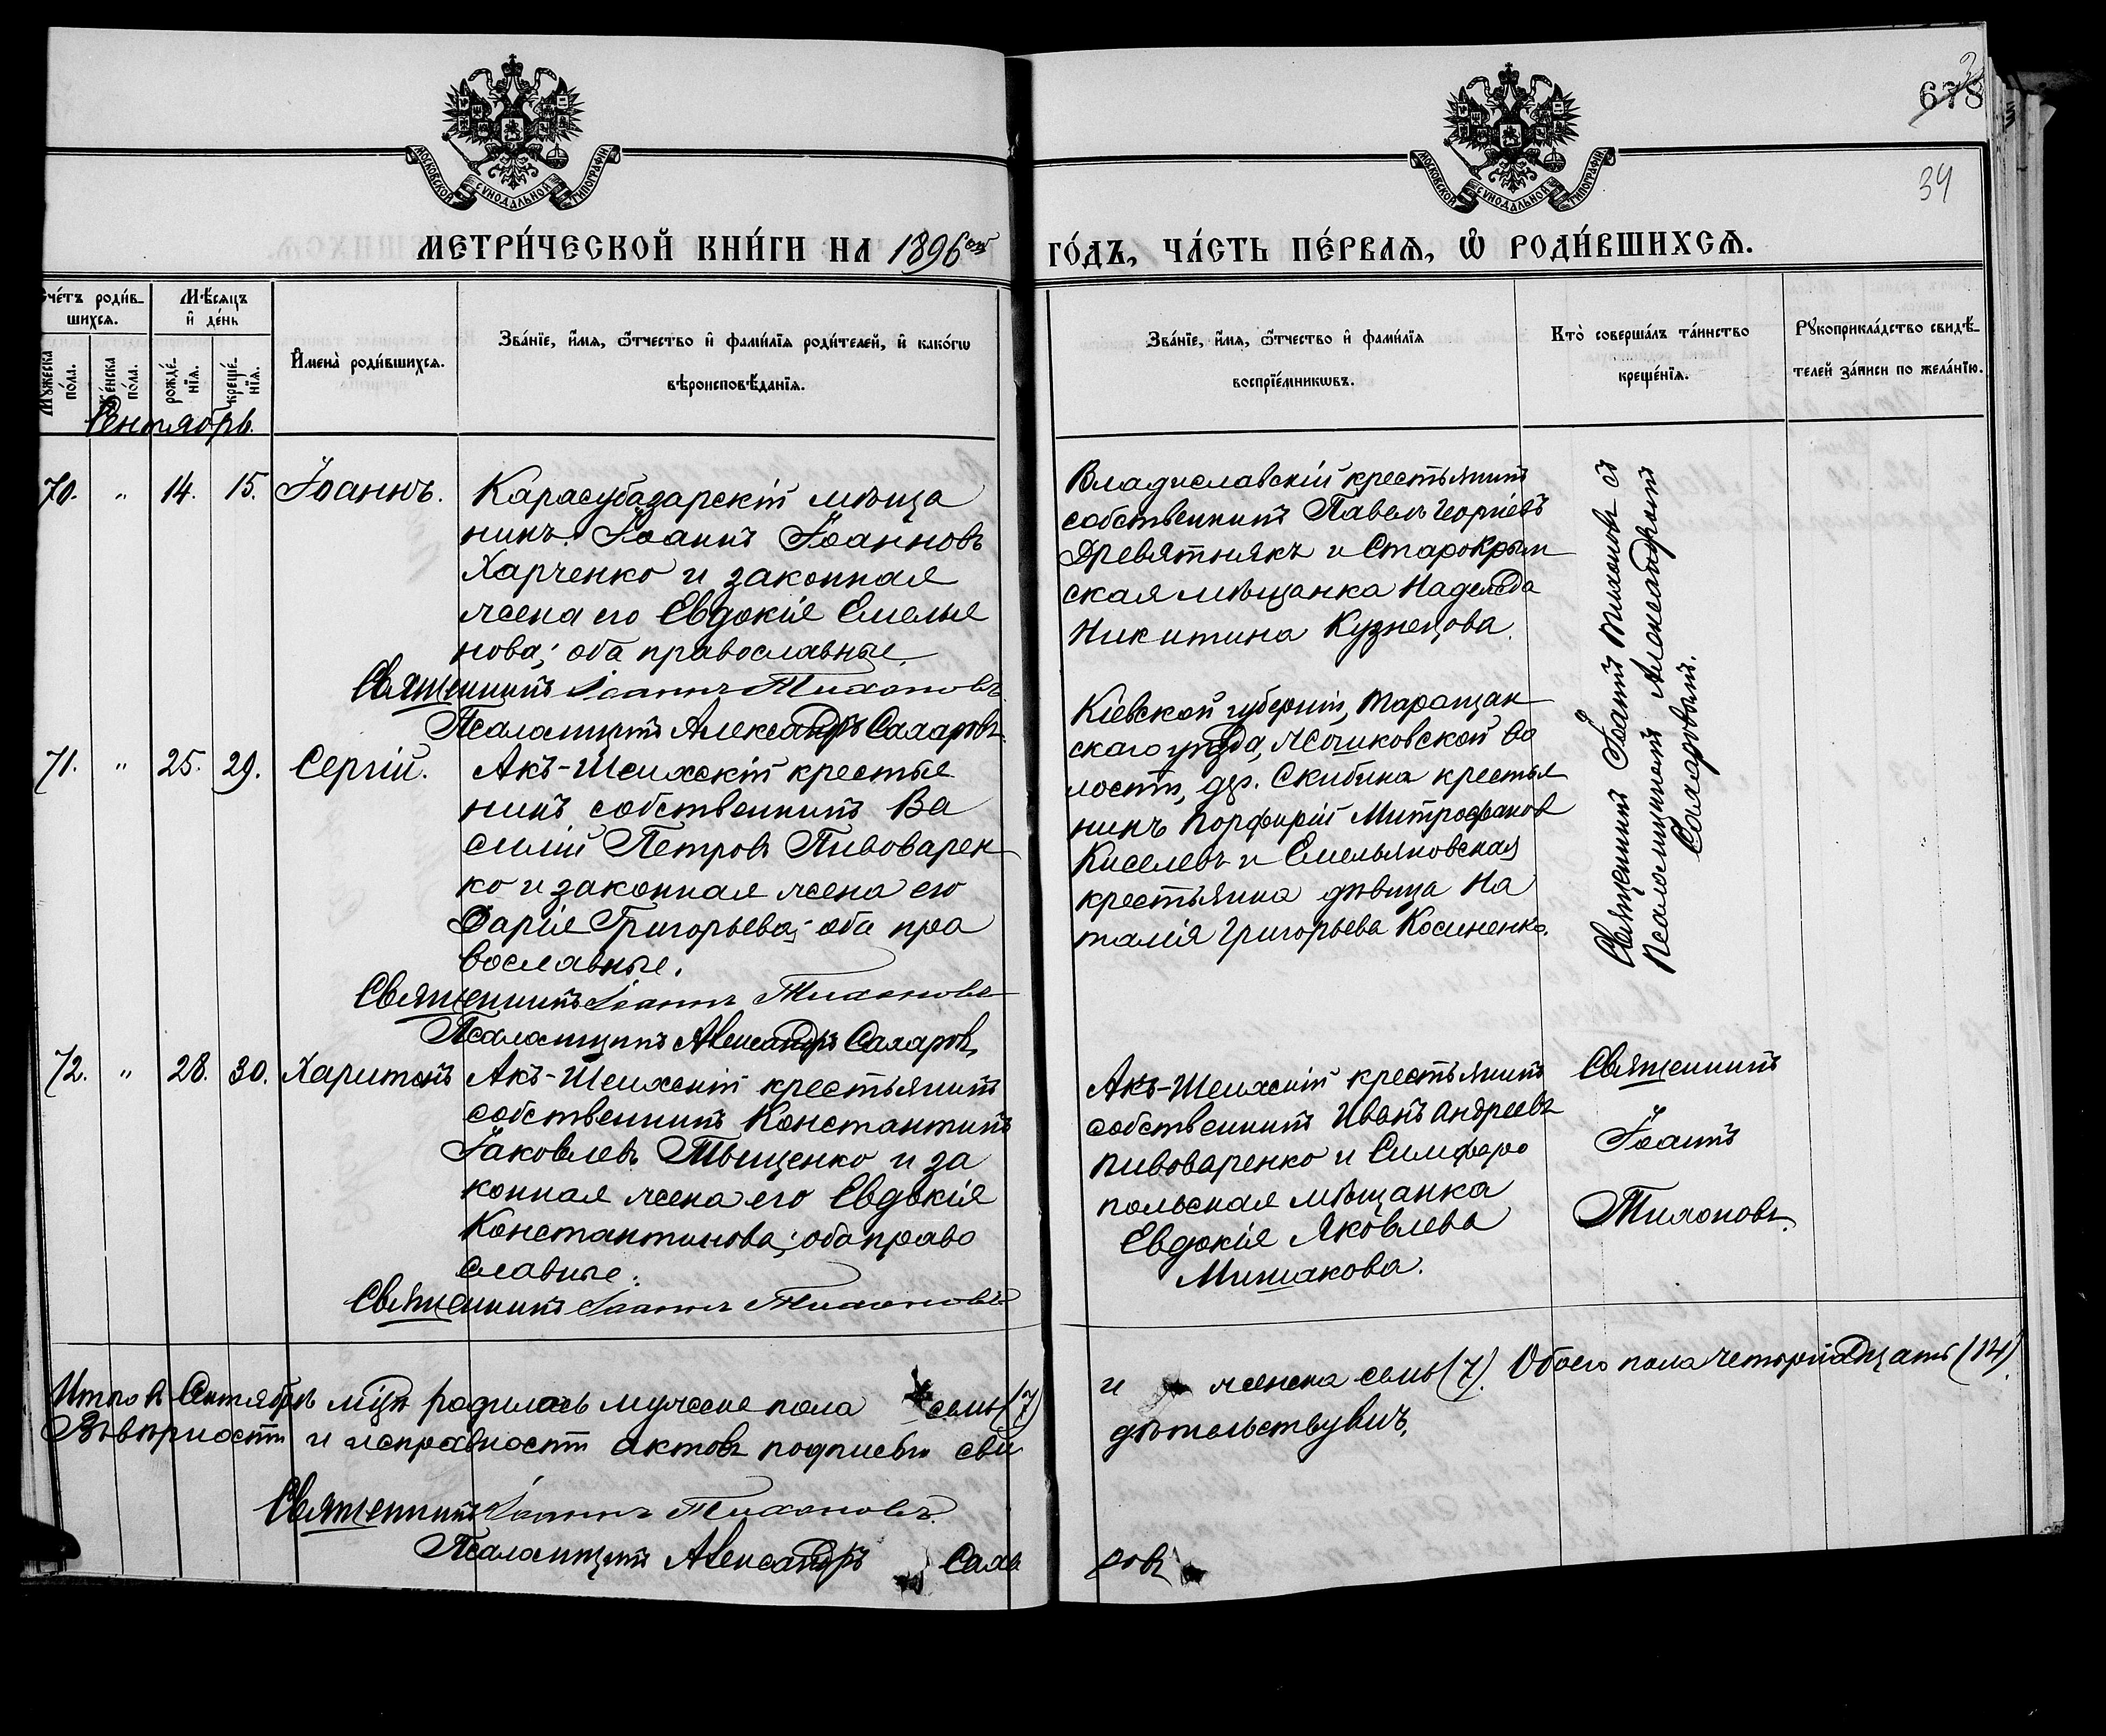 МОСКОВСКОЙ СѴНОДАЛЬНОЙ ТИПОГРАФІИ
МОСКОВСКОЙ СѴНОДАЛЬНОЙ ТИПОГРАФІИ
678
34
МЕТРИ́ЧЕСКОЙ КНИ́ГИ НА 1896ой
ГО́ДЪ, ЧА́СТЬ ПЕ́РВАѦ, Ѡ҆ РОДИ́ВШИХСѦ.
Сче́тъ роди́в-
шихсѧ.
Мѣ́сѧцъ
и҆ де́нь
Мꙋ́жеска
по́ла.
Же́нска
по́ла.
рожде́-
нїѧ.
креще́-
нїѧ.
И҆мена̀ роди́вшихсѧ.
Зва́нїе, и҆́мѧ, ѻ҆́тчество и҆ фами́лїѧ роди́телей, и҆ како́гѡ
вѣроисповѣ́данїѧ.
Зва́нїе, и҆́мѧ, ѻ҆́тчество и҆ фами́лїѧ
воспрїе́мникѡвъ.
Кто̀ соверша́лъ та́инство
креще́нїѧ.
Рꙋкоприкла́дство свидѣ́-
телей за́писи по жела́нїю.
Сентябрь.
70. " 14. 15. Іоаннъ.
Карасубазарскій мѣща
нинъ Іоаннъ Іоанновъ
Харченко и законная
жена его Евдокія Емелья
нова; оба православные.
Священникъ Іоаннъ Тихоновъ
Псаломщикъ Александръ Сахаровъ.
Владиславскій крестьянинъ
собственникъ Павелъ Георгіевъ
Древятнякъ и Старокрым
ская мѣщанка Надежда
Никитина Кузнецова.
Священникъ Іоаннъ Тихоновъ съ
Псаломщикомъ Александромъ
Сахаровымъ.
71. " 25. 29. Сергій.
Акъ-Шеихскій крестья
нинъ собственникъ Ва
силій Петровъ Пивоварен
ко и законная жена его
Дарія Григорьева; оба пра
вославные.
Священникъ Іоаннъ Тихоновъ
Псаломщикъ Александръ Сахаровъ
Кіевской губерніи, Таращан
скаго уѣзда, во
лости, дер. Скибина крестья
нинъ Порфирій Митрофановъ
Киселевъ и Емельяновская
крестьянка дѣвица На
талія Григорьева Косиненко.
72. " 28. 30. Харитонъ
Акъ-Шеихскій крестьянинъ
собственникъ Константинъ
Іаковлевъ Тыщенко и за
конная жена его Евдокія
Константинова; оба право
славные.
Священникъ Іоаннъ Тихоновъ
Акъ-Шеихскій крестьянинъ
собственникъ Иванъ Андреевъ
Пивоваренко и Симферо
польская мѣщанка
Евдокія Яковлева
Мишакова.
Священникъ
Іоаннъ
Тихоновъ.
Итого въ Сентябрѣ мѣцѣ родилось мужеска пола семь (7)
и женска семь (7). Обоего пола четырнадцать (14).
Въ вѣрности и исправности актовъ подписью сви
дѣтельствуемъ,
Священникъ Іоаннъ Тихоновъ.
Псаломщикъ Александръ Саха
ровъ